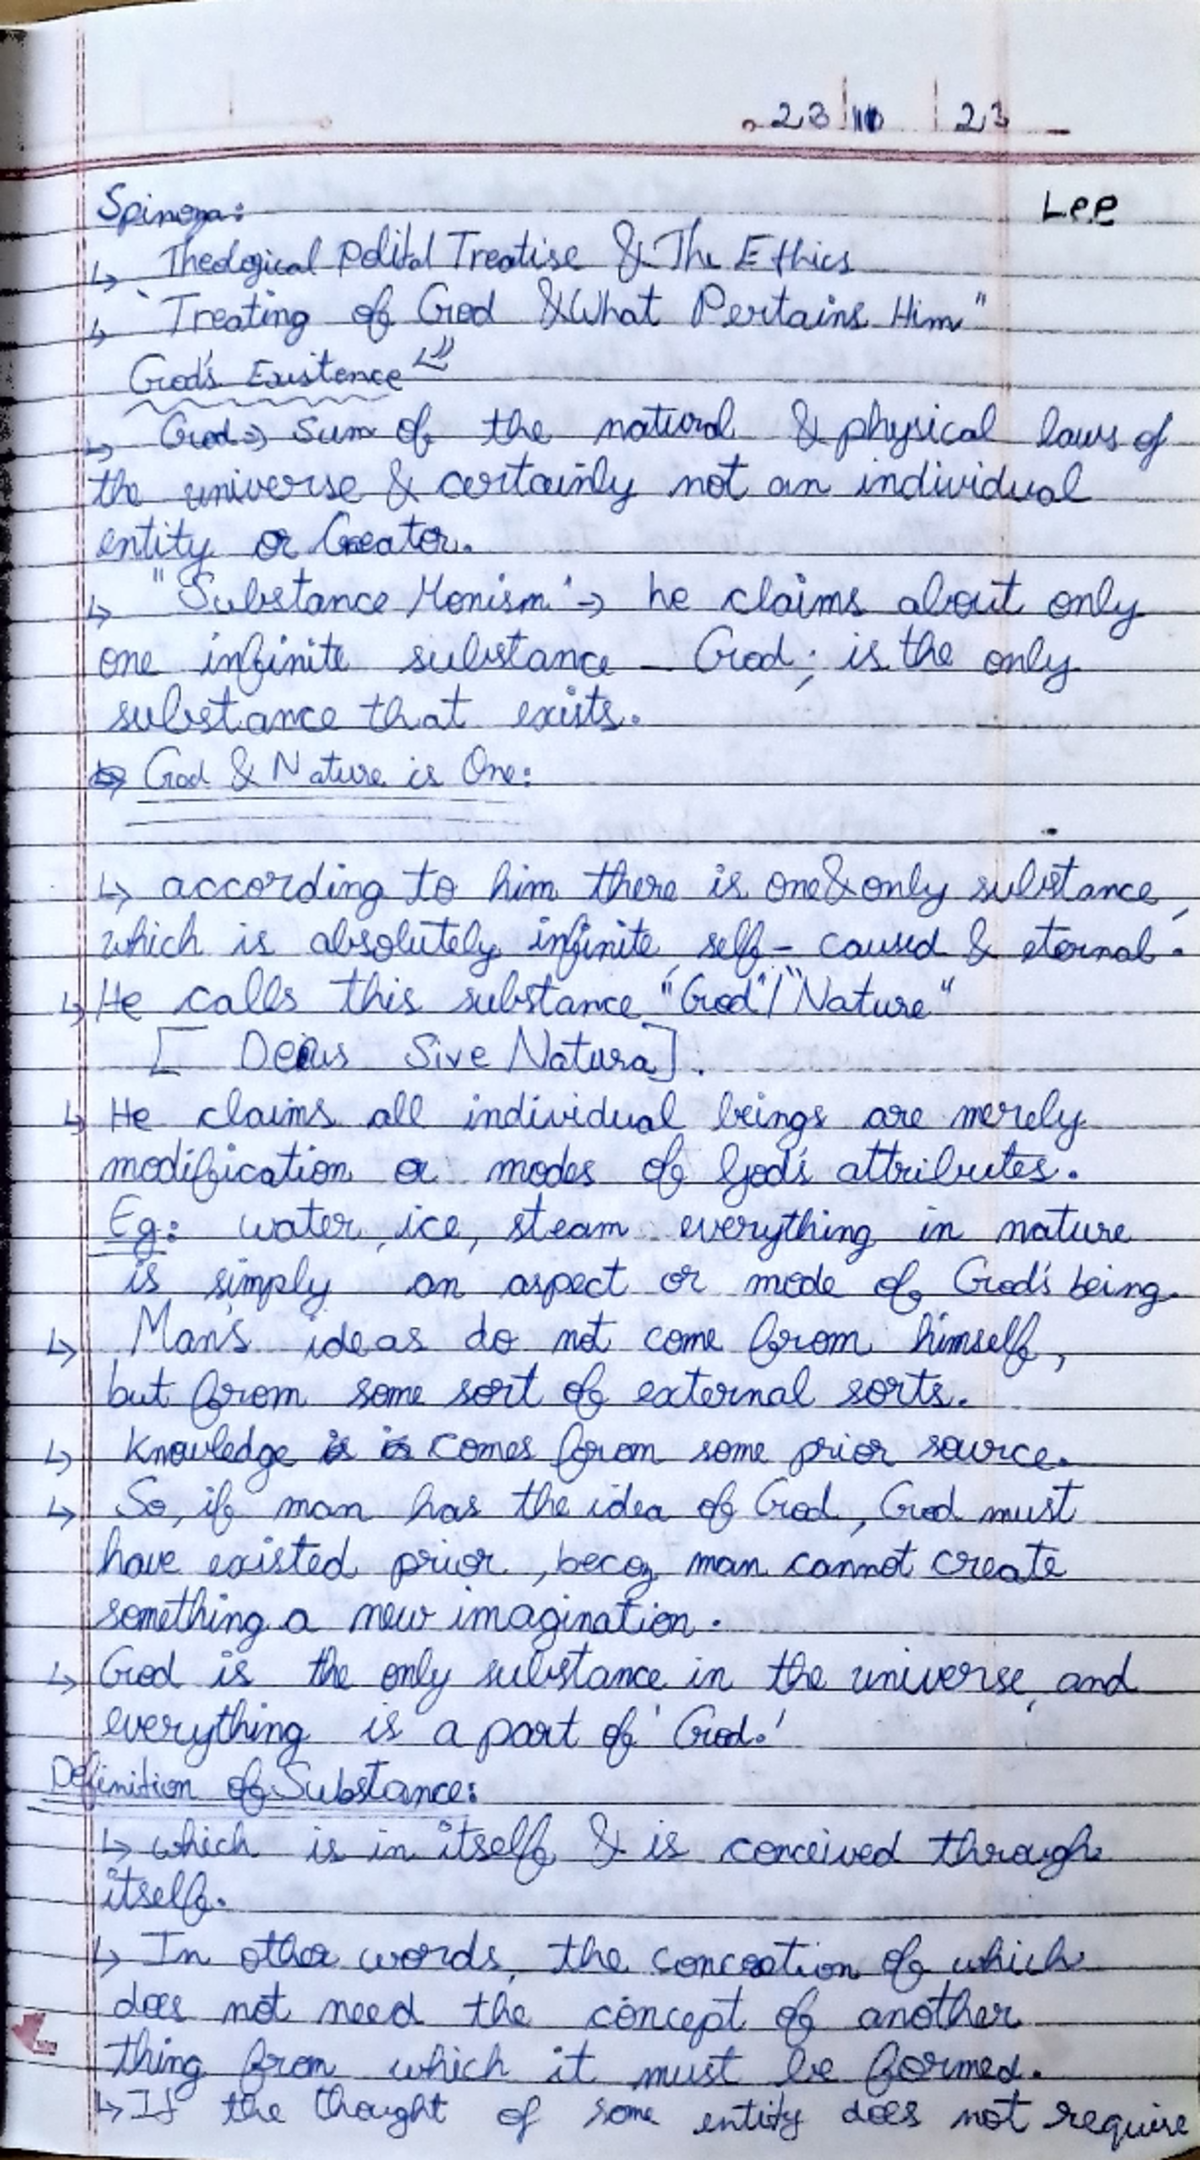 23/10/23
Lee
Spinoza:
↳ Theological Polital Treatise & The Ethics
↳ "Treating of God & What Pertains Him"
God's Existence
↳ God => Sum of the natural & physical laws of
the universe & certainly not an individual
entity or Creator.
↳ "Substance Monism" → he claims about only
one infinite substance - God; is the only
substance that exists.
↳ God & Nature is One:
↳ according to him there is one & only substance,
which is absolutely infinite, self-caused & eternal.
↳ He calls this substance "God"/"Nature"
[Deus Sive Natura].
↳ He claims all individual beings are merely
modification or modes of God's attributes.
Eg: water, ice, steam everything in nature
is simply an aspect or mode of God's being.
↳ Man's ideas do not come from himself,
but from some sort of external sorts.
↳ Knowledge comes from some prior source.
↳ So, if man has the idea of God, God must
have existed prior, becoz man cannot create
something a new imagination.
↳ God is the only substance in the universe, and
everything is a part of 'God.'
Definition of Substance:
↳ which is in itself & is conceived through
itself.
↳ In other words, the conception of which
does not need the concept of another
thing from which it must be formed.
↳ If the thought of some entity does not require